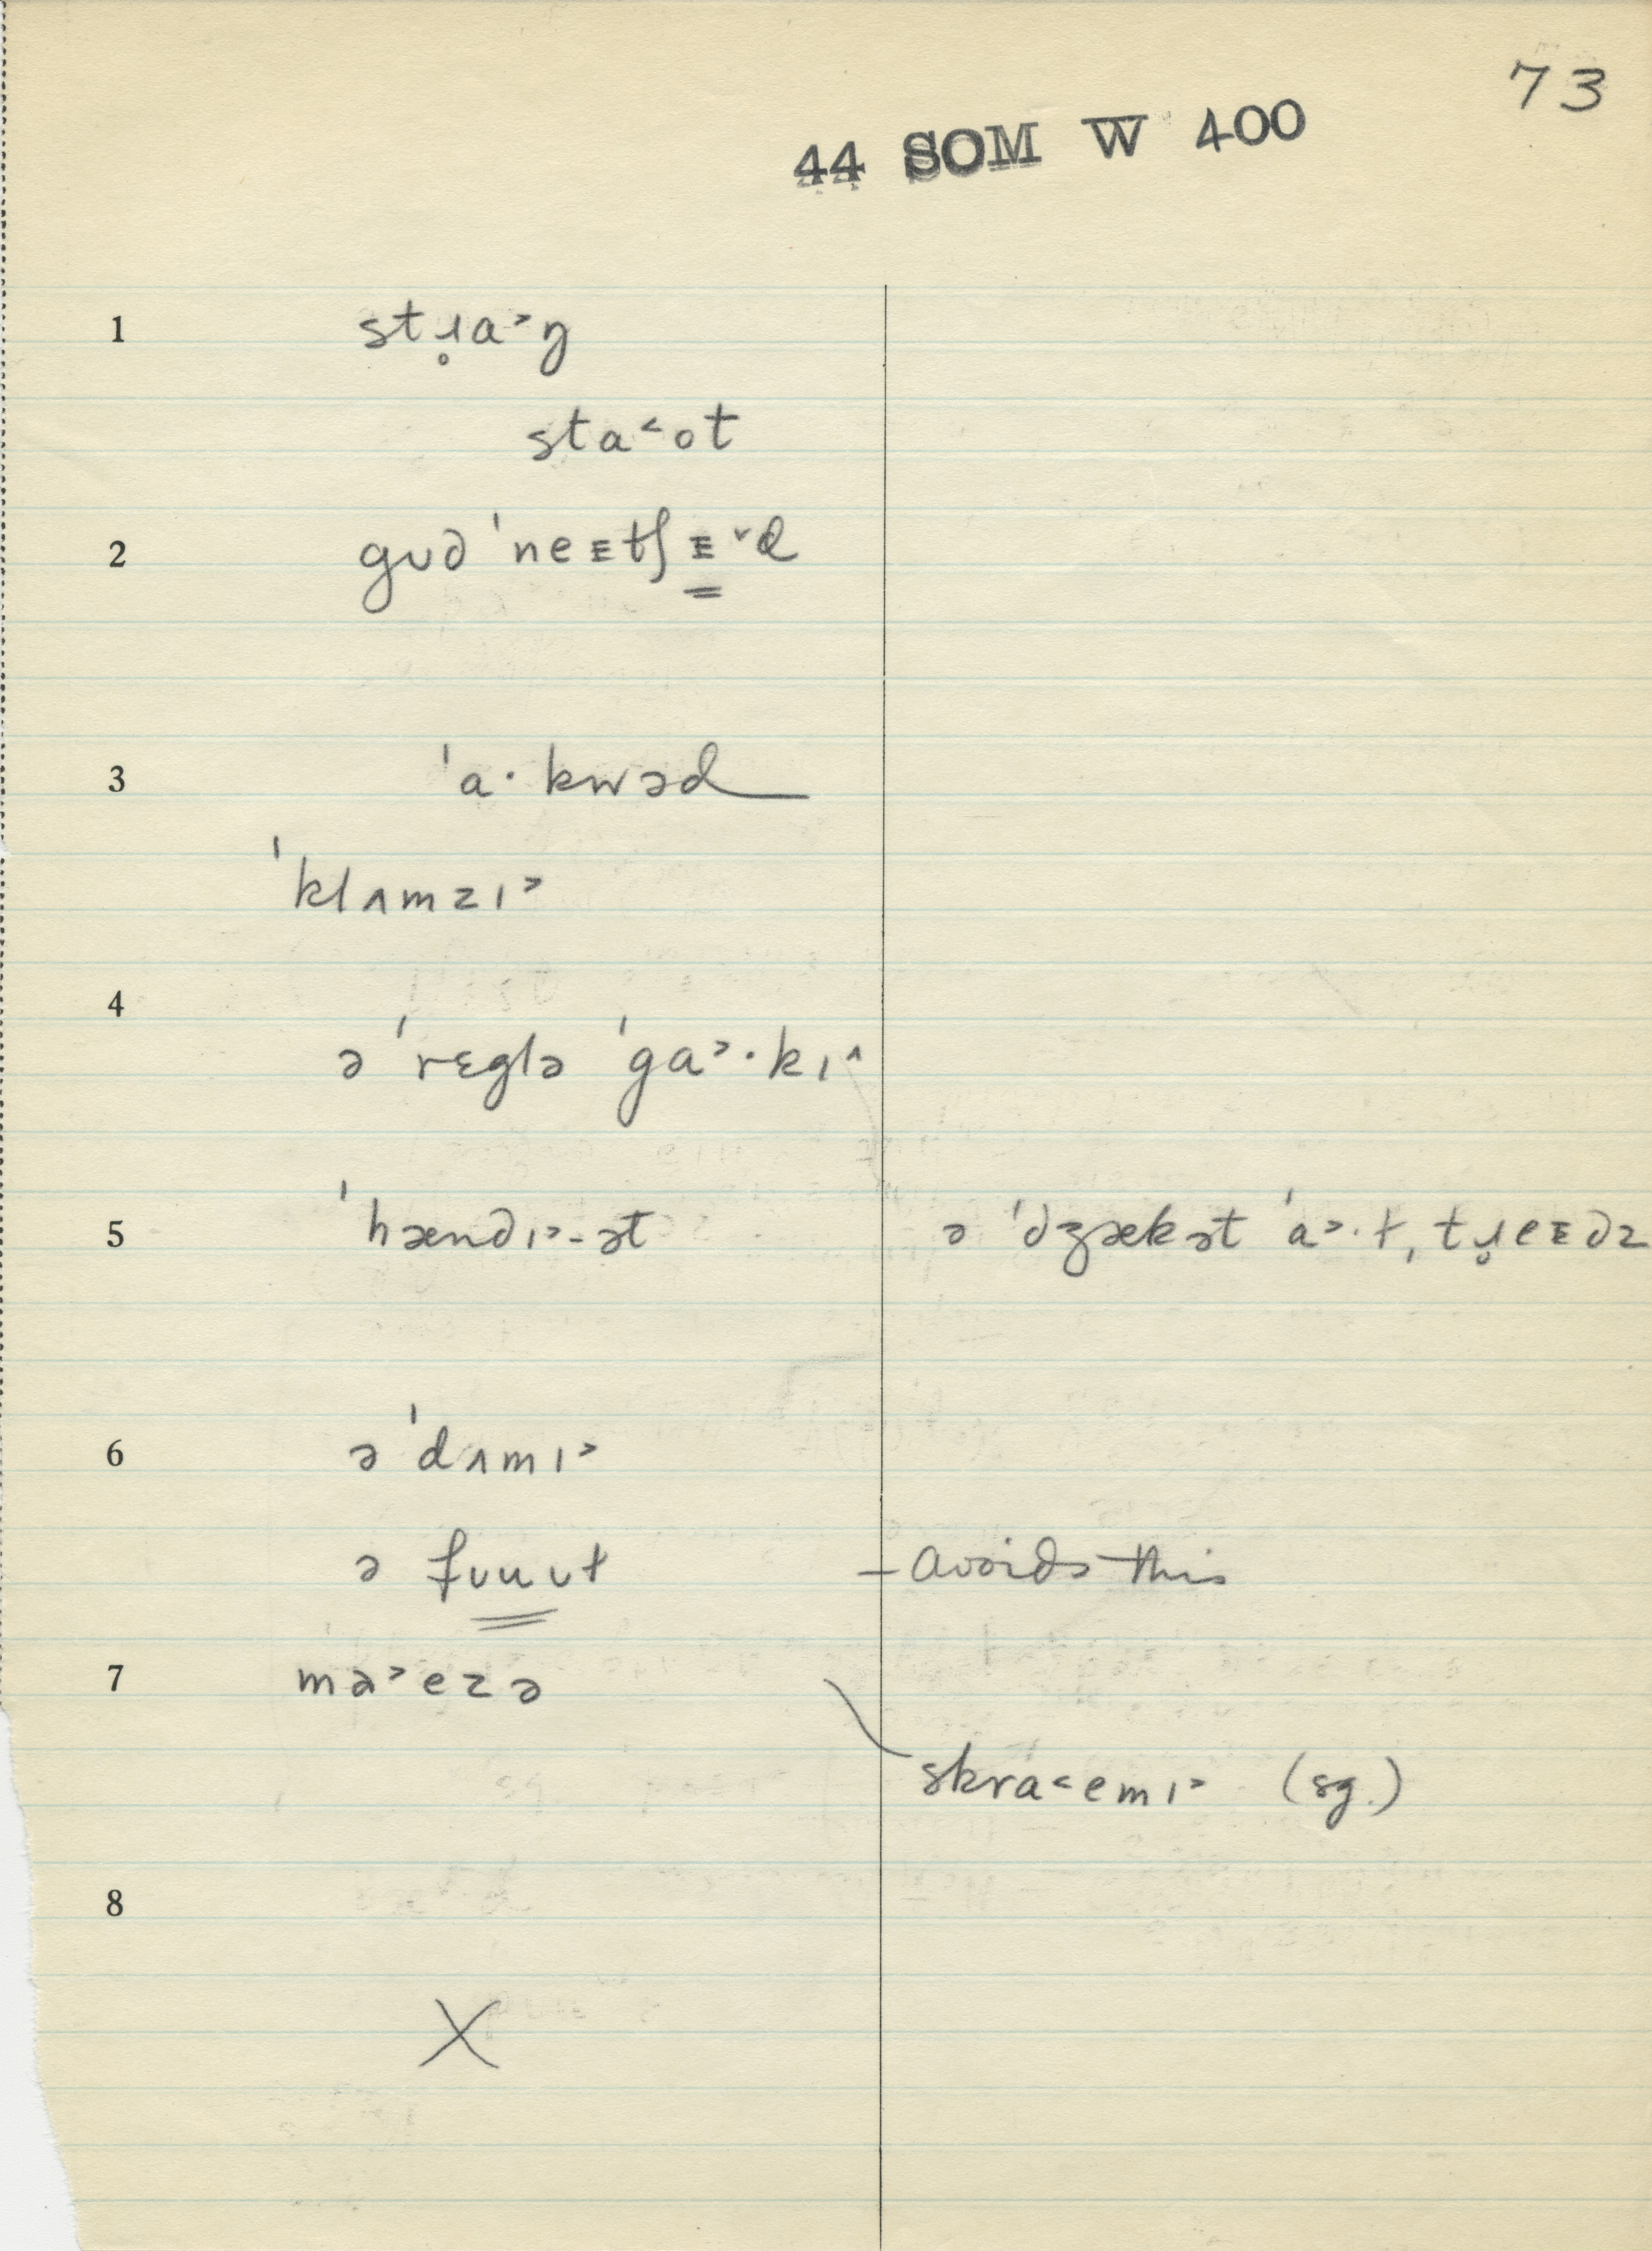 73
44 SOM W 400
1 stɹ̥a˃ŋ
sta˂ot
2 gʊd ˈneᴇtʃᴇ˅d
3 ˈa· kwəd
ˈklʌmzɪ˃
4
ə ˈrɛglə ˈga˃·kɪ^
5 ˈhændɪ˃-ət ə ˈdʒækət ˈa˃·ɫ, tɹ̥eᴇdz
6 ə ˈdʌmɪ˃
ə fʊuʊɫ – avoids this
7 mə˃ezə
skra˂emɪ˃ (sg.)
8
X